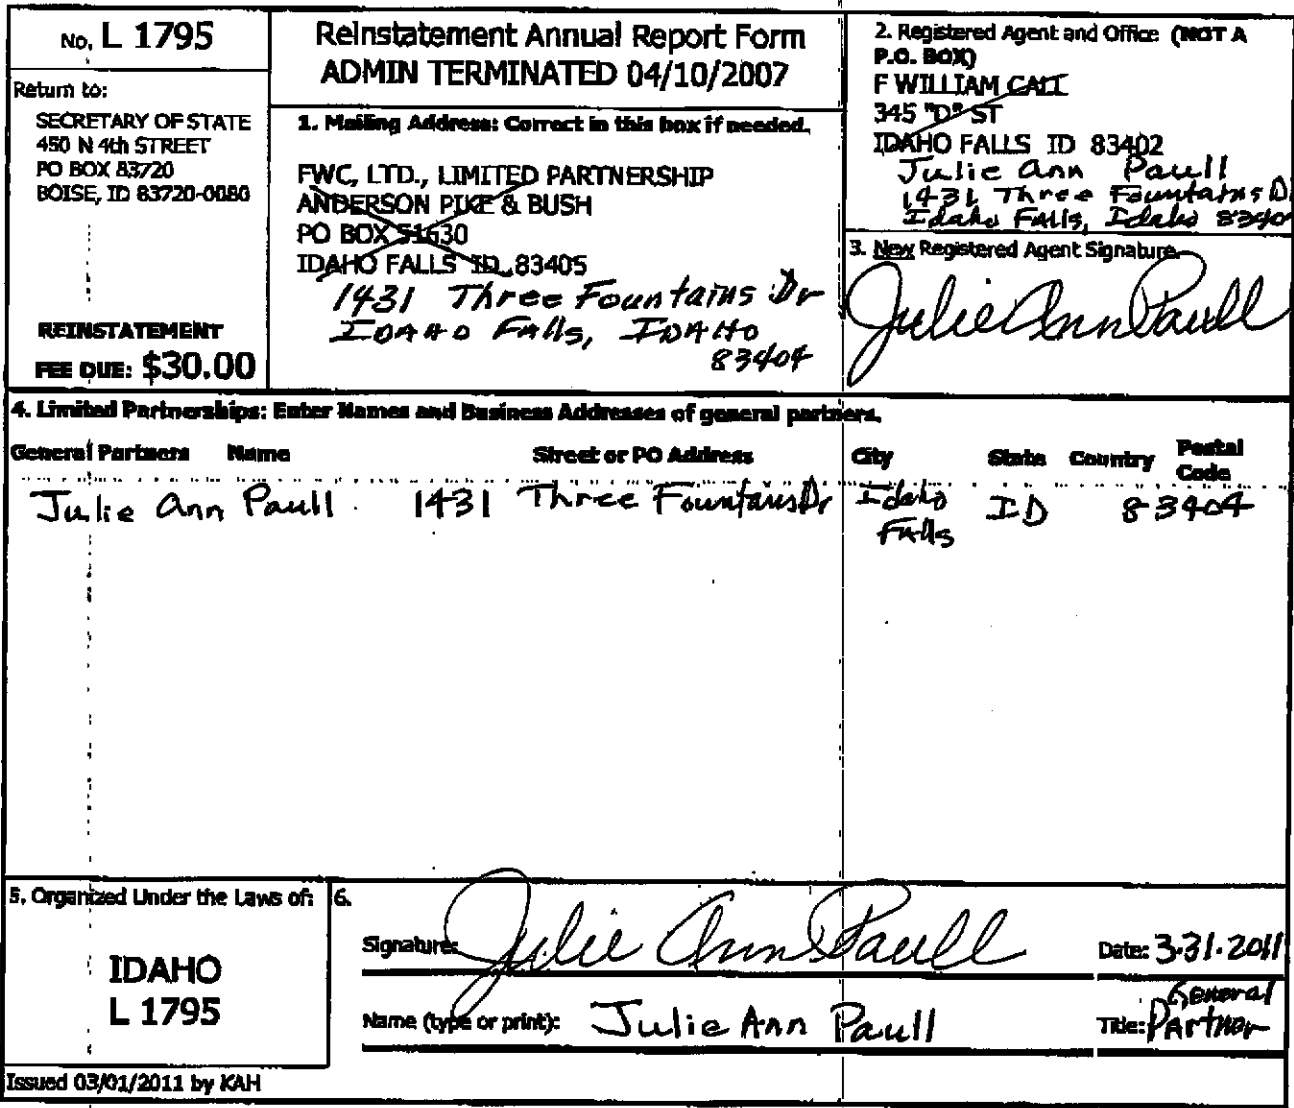 No. L 1795
Return to:
SECRETARY OF STATE
450 N 4th STREET
PO BOX 83720
BOISE, ID 83720-0080
REINSTATEMENT
FEE DUE: $30.00
Reinstatement Annual Report Form
ADMIN TERMINATED 04/10/2007
1. Mailing Address: Correct in this box if needed.
FWC, LTD., LIMITED PARTNERSHIP
ANDERSON PIKE & BUSH
PO BOX 51630
IDAHO FALLS ID 83405
1431 Three Fountains Dr
IDAHO FAlls, IDAHO
83404
2. Registered Agent and Office (NOT A
P.O. BOX)
F WILLIAM CALL
345 "D" ST
IDAHO FALLS ID 83402
Julie Ann Paull
1431 Three Fountains D
Idaho FAlls, Idaho 8340
3. New Registered Agent Signature
Julie Ann Paull
4. Limited Partnerships: Enter Names and Business Addresses of general partners.
General Partners Name Street or PO Address City State Country Postal
Code
Julie Ann Paull 1431 Three Fountains Dr Idaho ID 83404
FAlls
5. Organized Under the Laws of:
IDAHO
L 1795
6.
Signature: Julie Ann Paull Date: 3.31.2011
Name (type or print): Julie Ann Paull Title: General
Partner
Issued 03/01/2011 by KAH